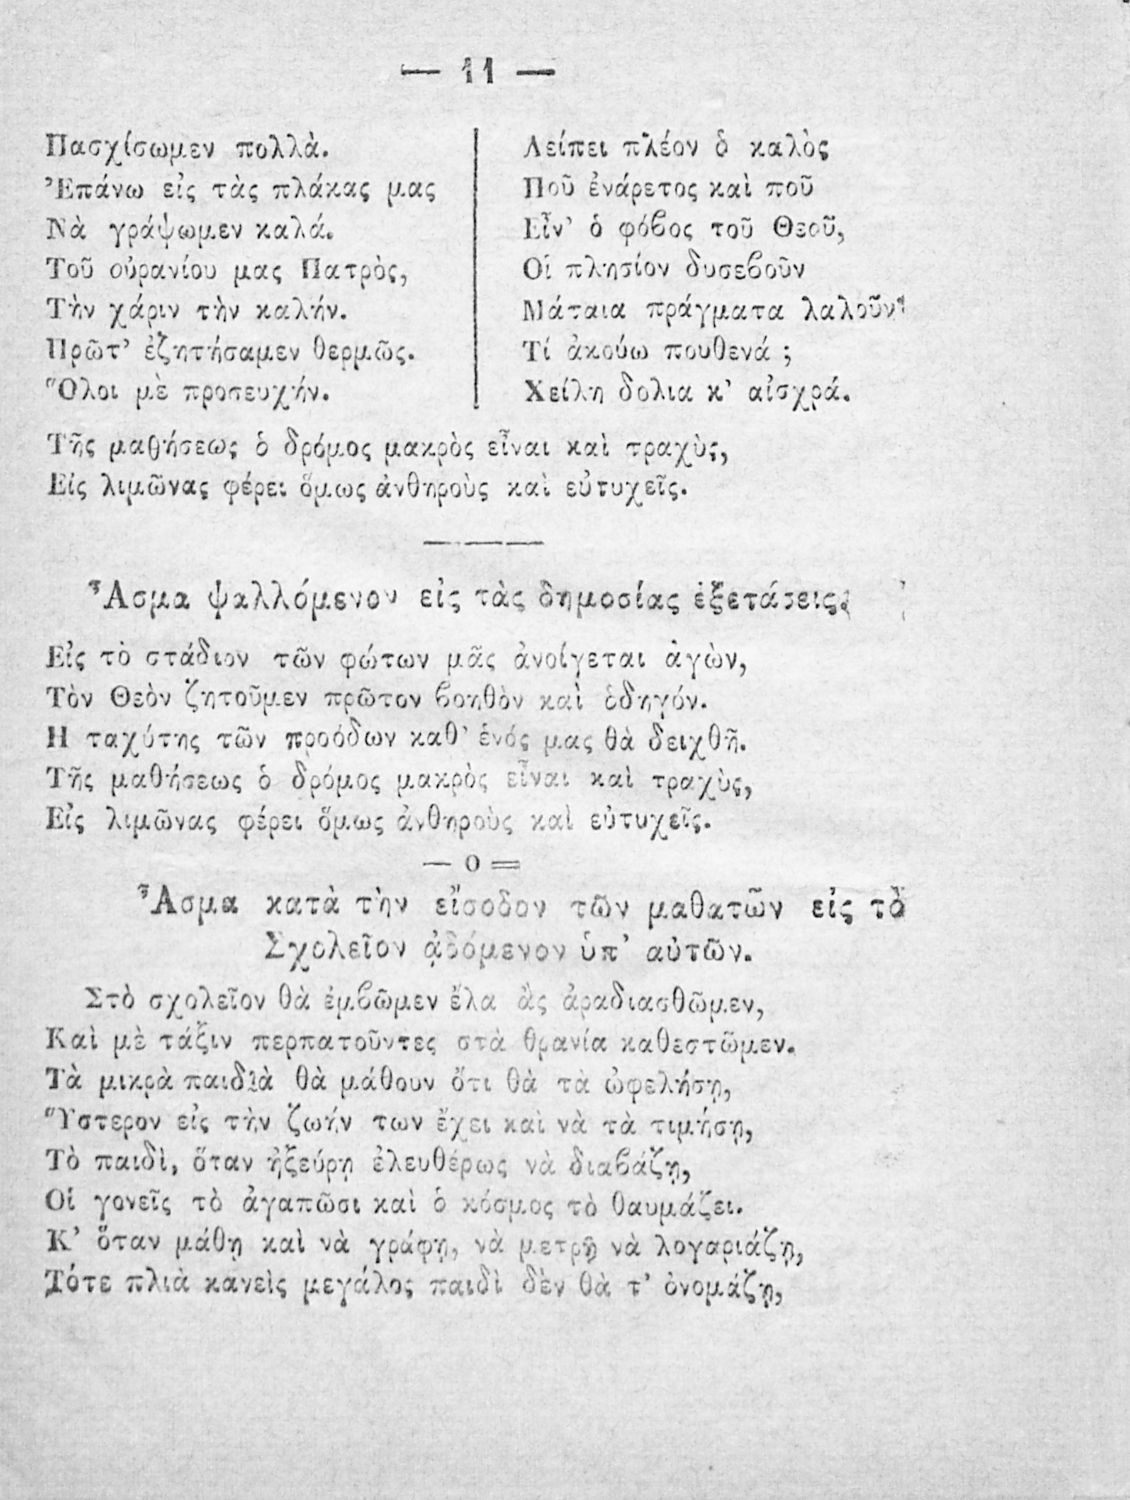 — 11 —
Πασχίσωμεν πολλὰ.
Ἐπάνω εἰς τὰς πλάκας μας
Νὰ γράψωμεν καλά.
Τοῦ οὐρανίου μας Πατρὸς,
Τὴν χάριν τὴν καλήν.
Πρῶτ' ἐζητήσαμεν θερμῶς.
Ὅλοι μὲ προσευχήν.
Λείπει πλέον ὁ καλὸς
Ποῦ ἐνάρετος καὶ ποῦ
Εἶν' ὁ φόβος τοῦ Θεοῦ,
Οἱ πλησίον δυσεβοῦν
Μάταια πράγματα λαλοῦν·
Τί ἀκούω πουθενά ;
Χείλη δολια κ' αἰσχρά.
Τῆς μαθήσεως ὁ δρόμος μακρὸς εἶναι καὶ τραχὺς,
Εἰς λιμῶνας φέρει ὅμως ἀνθηροὺς καὶ εὐτυχεῖς.
Ἆσμα ψαλλόμενον εἰς τὰς δημοσίας ἐξετάσεις.
Εἰς τὸ στάδιον τῶν φώτων μᾶς ἀνοίγεται ἀγὼν,
Τὸν Θεὸν ζητοῦμεν πρῶτον βοηθὸν καὶ ὁδηγόν.
Η ταχύτης τῶν προόδων καθ' ἑνός μας θὰ δειχθῆ.
Τῆς μαθήσεως ὁ δρόμος μακρὸς εἶναι καὶ τραχὺς,
Εἰς λιμῶνας φέρει ὅμως ἀνθηροὺς καὶ εὐτυχεῖς.
— ο =
Ἆσμα κατὰ τὴν εἴσοδον τῶν μαθατῶν εἰς τὸ
Σχολεῖον ᾀδόμενον ὑπ' αὐτῶν.
Στὸ σχολεῖον θὰ ἐμβῶμεν ἔλα ἂς ἀραδιασθῶμεν,
Καὶ μὲ τάξιν περπατοῦντες στὰ θρανία καθεστῶμεν.
Τὰ μικρὰ παιδιὰ θὰ μάθουν ὅτι θὰ τὰ ὠφελήσῃ,
Ὕστερον εἰς τὴν ζωήν των ἔχει καὶ νὰ τὰ τιμήσῃ,
Τὸ παιδὶ, ὅταν ἠξεύρῃ ἐλευθέρως νὰ διαβάζῃ,
Οἱ γονεῖς τὸ ἀγαπῶσι καὶ ὁ κόσμος τὸ θαυμάζει.
Κ' ὅταν μάθῃ καὶ νὰ γράφῃ, νὰ μετρῇ νὰ λογαριάζῃ,
Τότε πλιὰ κανεὶς μεγάλος παιδὶ δὲν θὰ τ' ὀνομάζῃ,